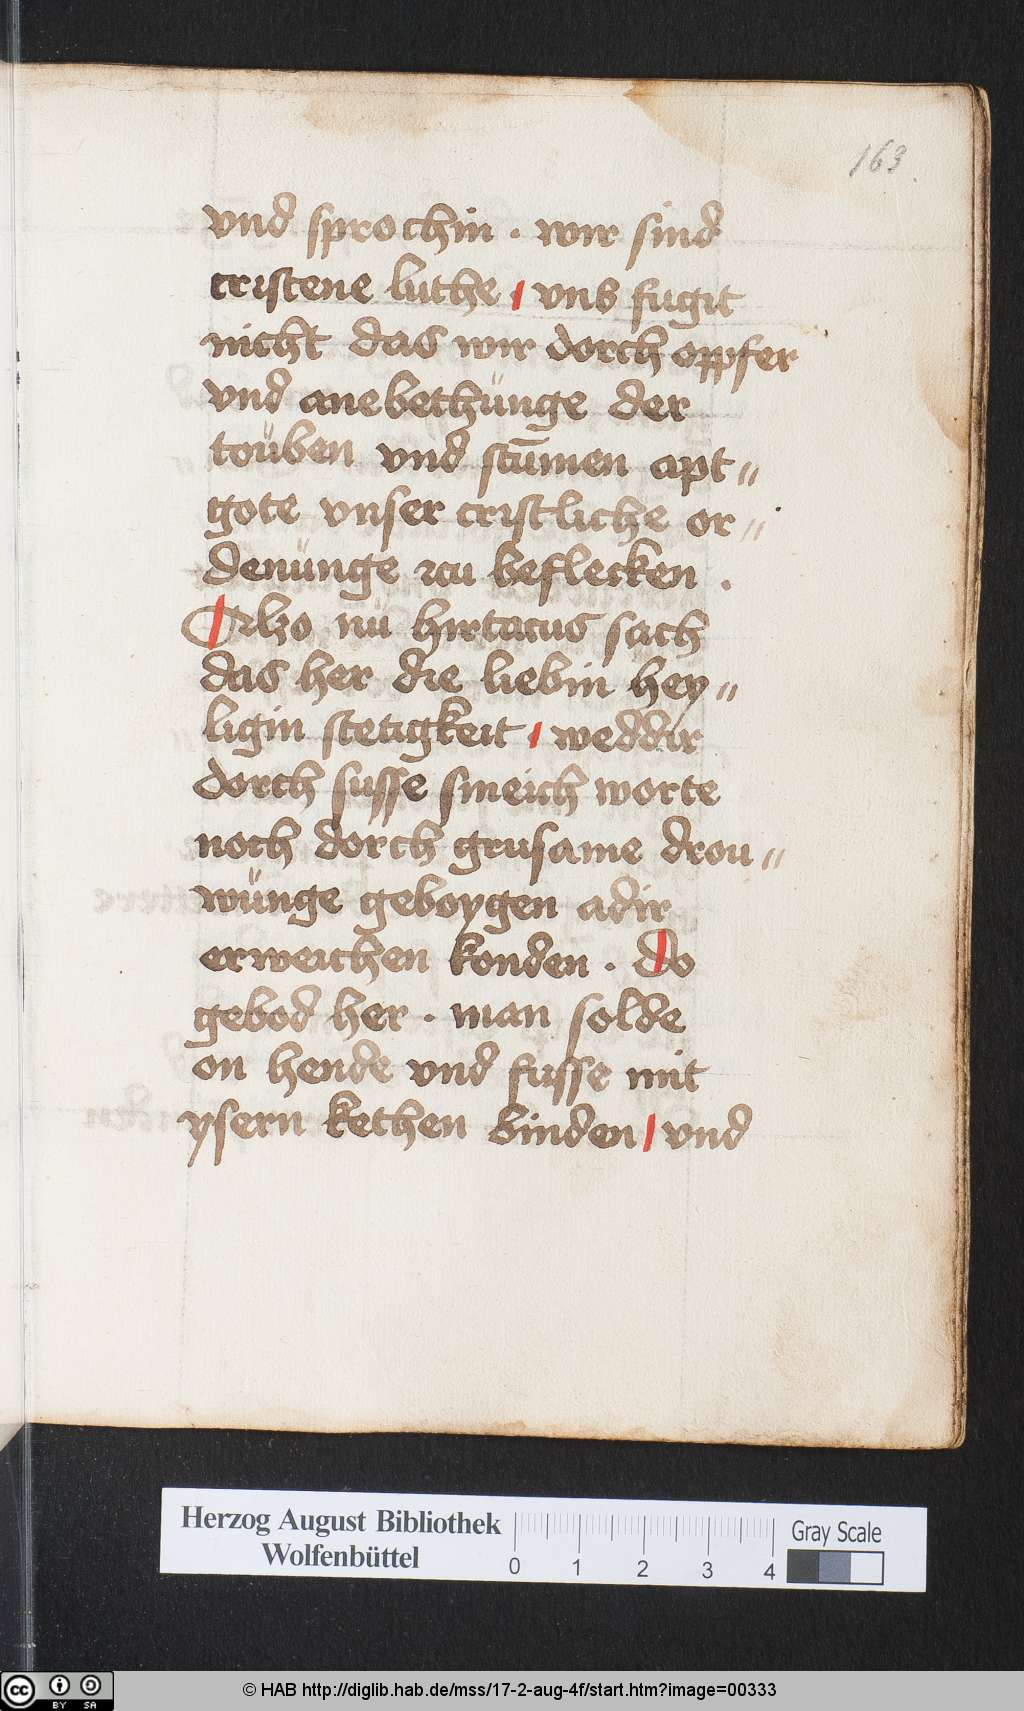 163
vnd sprochin . wir sind
cristene luthe / vns fugit
nicht das wir dorch oppfer
vnd anebethünge der
toüben vnd stu̅men apt=
gote vnser cristliche or=
denünge zcu beflecken .
Also nü hirtacus sach
das her die liebin hey=
ligin stetigkeit / weddir
dorch susse smeich worte
noch dorch grusame drou=
wünge geboygen adir
erweichen konden . Do
gebod her . man solde
on hende vnd fusse mit
ysern kethen binden / vnd
Herzog August Bibliothek
Wolfenbüttel
0 1 2 3 4
Gray Scale
cc BY SA
© HAB http://diglib.hab.de/mss/17-2-aug-4f/start.htm?image=00333